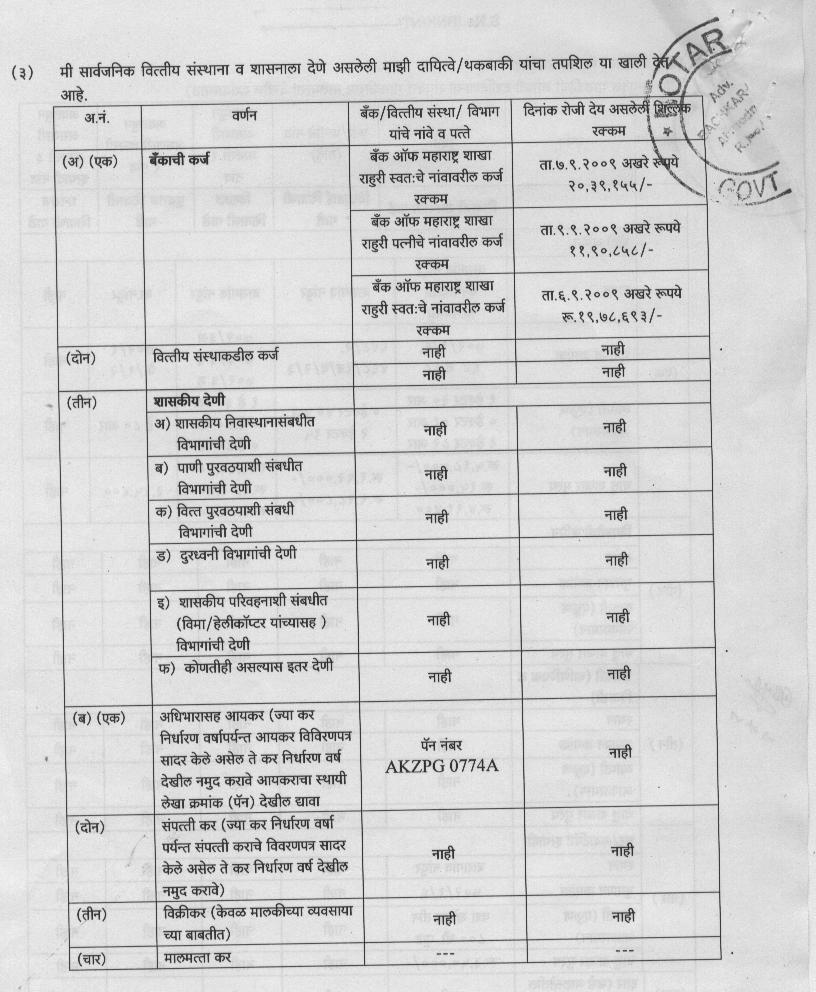 (३) मी सार्वजनिक वित्तीय संस्थाना व शासनाला देणे असलेली माझी दायित्वे/थकबाकी यांचा तपशिल या खाली देत
आहे.
अ.नं. वर्णन बँक/वित्तीय संस्था/ विभाग यांचे नांवे व पत्ते दिनांक रोजी देय असलेली शिल्लक रक्कम
(अ) (एक) बँकाची कर्ज बँक ऑफ महाराष्ट्र शाखा ता.७.९.२००९ अखरे रूपये
राहुरी स्वत:चे नांवावरील कर्ज २०,३९,१५५/-
रक्कम
बँक ऑफ महाराष्ट्र शाखा ता.९.९.२००९ अखरे रूपये
राहुरी पत्नीचे नांवावरील कर्ज ११,९०,८५८/-
रक्कम
बँक ऑफ महाराष्ट्र शाखा ता.६.९.२००९ अखरे रूपये
राहुरी स्वत:चे नांवावरील कर्ज रू.१९,७८,६९३/-
रक्कम
(दोन) वित्तीय संस्थाकडील कर्ज नाही नाही
नाही नाही
(तीन) शासकीय देणी
अ) शासकीय निवास्थानासंबधीत नाही नाही
विभागांची देणी
ब) पाणी पुरवठयाशी संबधीत नाही नाही
विभागांची देणी
क) वित्त पुरवठयाशी संबधी नाही नाही
विभागांची देणी
ड) दुरध्वनी विभागांची देणी नाही नाही
इ) शासकीय परिवहनाशी संबधीत नाही नाही
(विमा/हेलीकॉप्टर यांच्यासह )
विभागांची देणी
फ) कोणतीही असल्यास इतर देणी नाही नाही
(ब) (एक) अधिभारासह आयकर (ज्या कर
निर्धारण वर्षापर्यन्त आयकर विविरणपत्र पॅन नंबर नाही
सादर केले असेल ते कर निर्धारण वर्ष AKZPG 0774A
देखील नमुद करावे आयकराचा स्थायी
लेखा क्रमांक (पॅन) देखील द्यावा
(दोन) संपत्ती कर (ज्या कर निर्धारण वर्षा
पर्यंत संपत्ती कराचे विवरणपत्र सादर नाही नाही
केले असेल ते कर निर्धारण वर्ष देखील
नमुद करावे)
(तीन) विक्रीकर (केवळ मालकीच्या व्यवसाया नाही नाही
च्या बाबतीत)
(चार) मालमत्ता कर --- ---
NOTAR
Adv.
GOVT